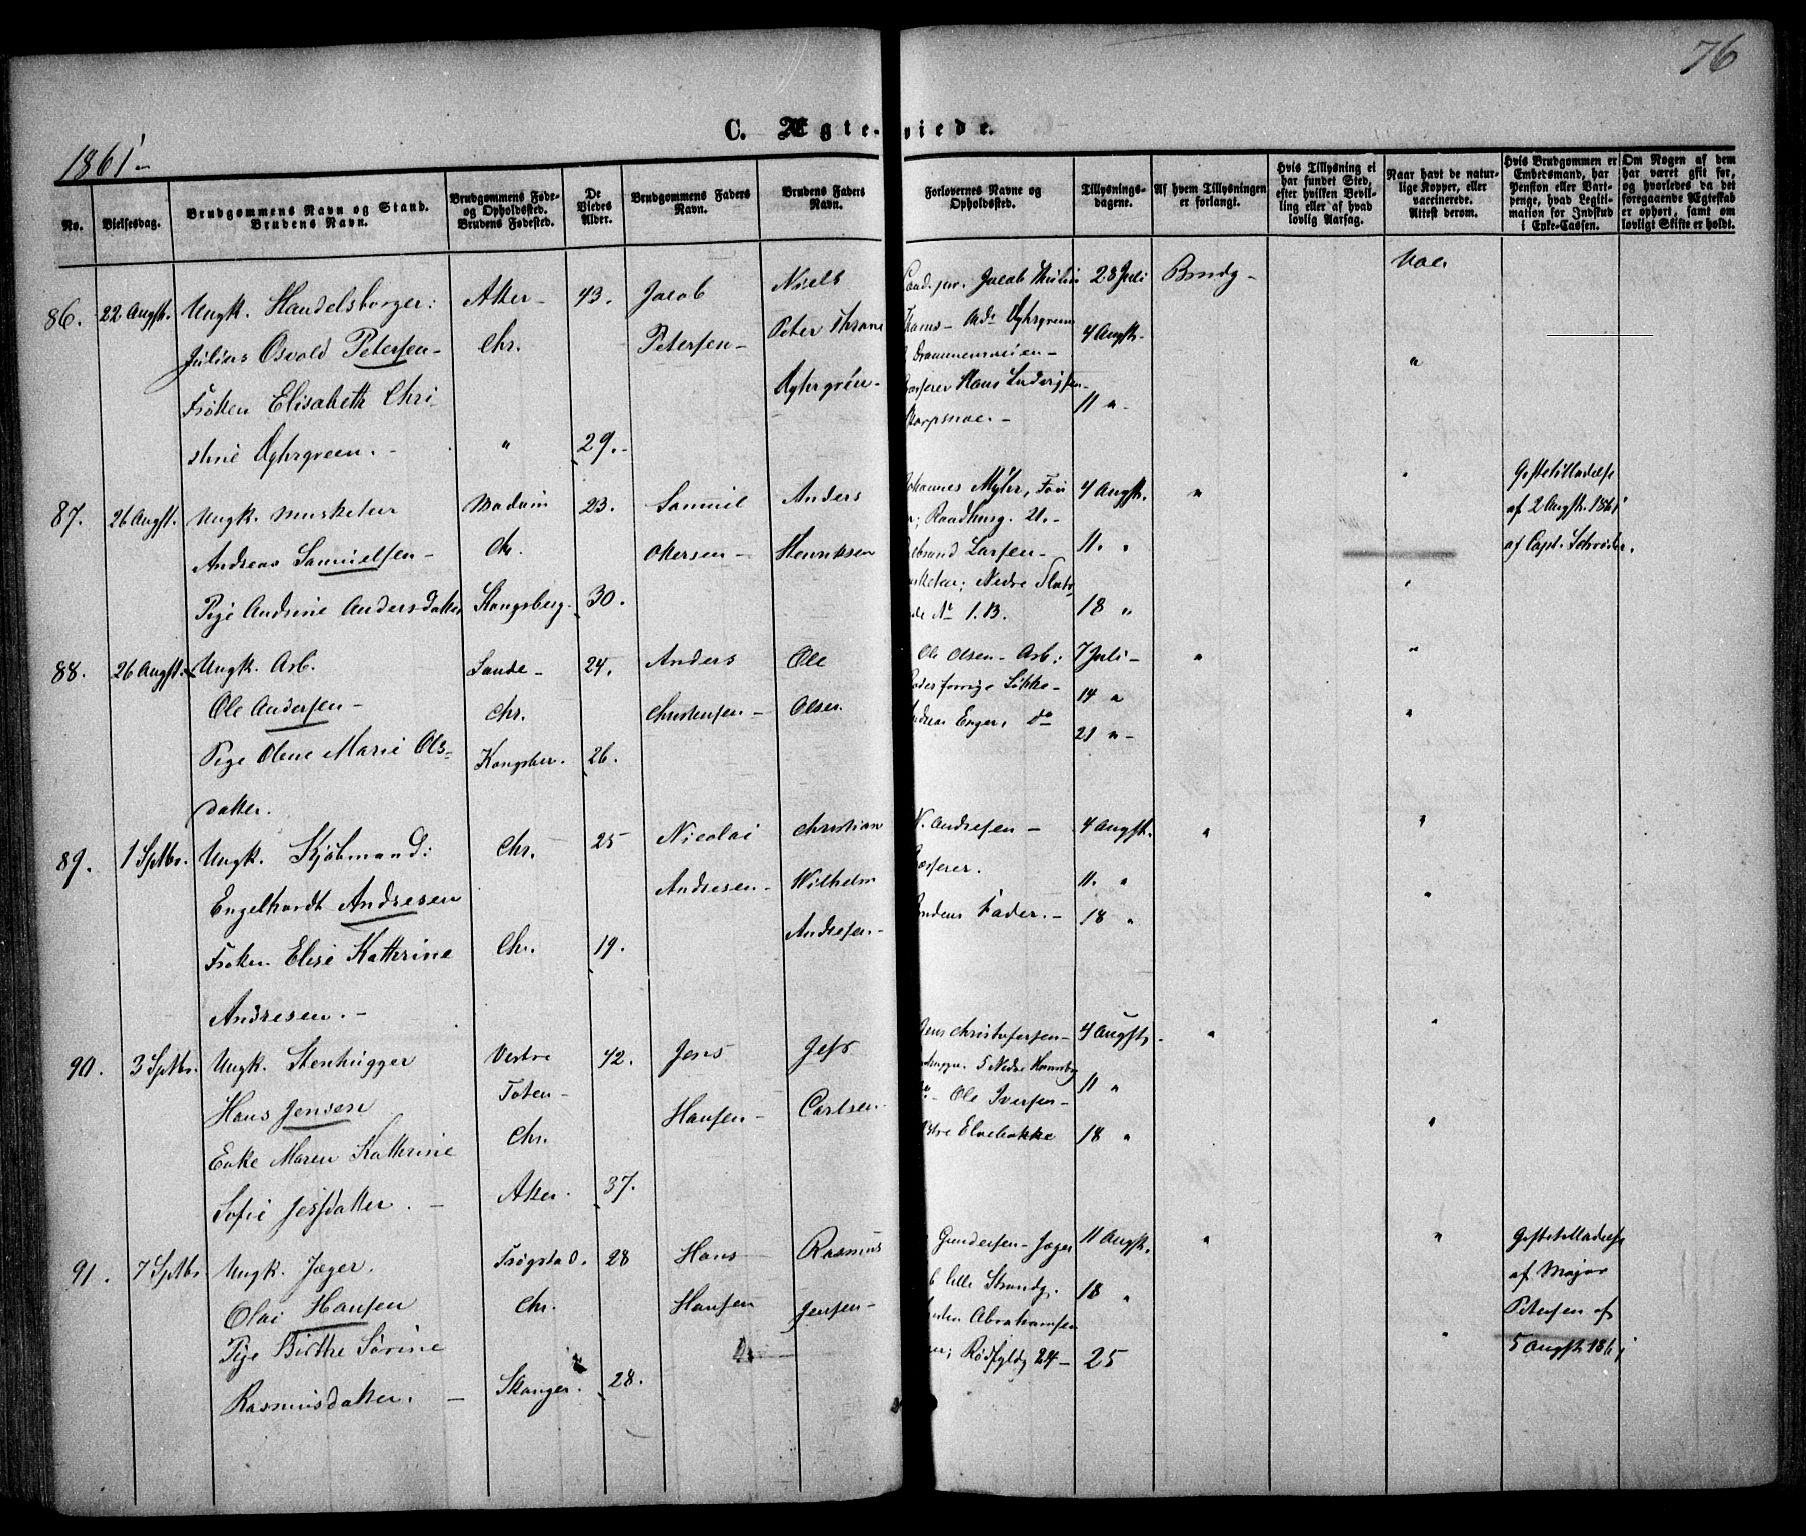 76
C. Ægte-viede.
1861 -
No.
Vielsesdag.
Brudgommens Navn og Stand.
Brudens Navn.
Brudgommens Føde-
og Opholdssted.
Brudens Fødested.
De
Viedes
Alder.
Brudgommens Faders
Navn.
Brudens Faders
Navn.
Forlovernes Navne og
Opholdssted.
Tillysnings-
dagene.
Af hvem Tillysningen
er forlangt.
Hvis Tillysning ei
har fundet Sted,
efter hvilken Bevil-
ling eller af hvad
lovlig Aarsag.
Naar havt de natur-
lige Kopper, eller
vaccinerede.
Attest derom.
Hvis Brudgommen er
Embedsmand, har
Pension eller Vart-
penge, hvad Legiti-
mation for Indskud
i Enke-Cassen.
Om Nogen af dem
har været gift før,
og hvorledes da det
foregaaende Ægteskab
er ophørt, samt om
lovligt Skifte er holdt.
86. 22 Augst. Ungk. Handelsborger: Aker - 43. Jacob Niels Jacob 28 Juli Brudg -
Julius Osvald Petersen - Chr. Petersen - Peter Thrane 4 Augst.
Frøken Elisabeth Chri- Dyhrgren - Drammensveien - "
stine Dyhrgreen. - " 29. - Hans 11 "
87. 26 Augst. Ungk. Musketer 23. Samuel Anders Johannes 4 Augst. " " Giftetilladelse
Andreas Samuelsen - Chr. Henriksen Raadhusg. 21. - 11. " af 2 Augst. 1861
Larsen - af Capt. Schrøder.
Pige Andrine Andersdatter Kongsberg. 30. Nedre No 1.B. 18 " "
88. 26 Augst. Ungk. Arb. Sande - 24. Anders Ole Ole Olsen - Arb: 7 Juli - " "
Ole Andersen - Chr. Christensen - Olsen Løkke - 14 "
Pige Olene Marie Ols- Kongsber. 26. Enger, do 21 " - "
datter.
89. 1 Sptbr. Ungk. Kjøbmand: Chr. 25 Nicolai Christian N. Andresen - 4 Augst. " "
Engelhardt Andresen Andresen - Wilhelm 11. "
Frøken Elise Kathrine Chr. 19. Andresen - Fader. - 18 " "
Andresen. -
90. 3 Sptbr. Ungk. Stenhugger Vestre 42. Jens Jess Christofersen - 4 Augst. " "
Hans Jensen Toten - Hansen - Carlsen 5 Nedre 11 "
Enke Maren Kathrine Chr. Ole Iversen - Elvebakke 18 " "
Sofie Jessdatter. - Aker. 37.
91. 7 Sptbr. Ungk. Jæger. Trøgstad. 28 Hans Rasmus Gundersen - Jæger 11 Augst. " " Giftetilladelse
Olai Hansen Chr. Hansen Jensen - Lille Strandg. 18 " af Major
Pige Birthe Sørine Abrahamsen Petersen af
Rasmusdatter. - 28. 24 - 25 " 5 Augst. 1861